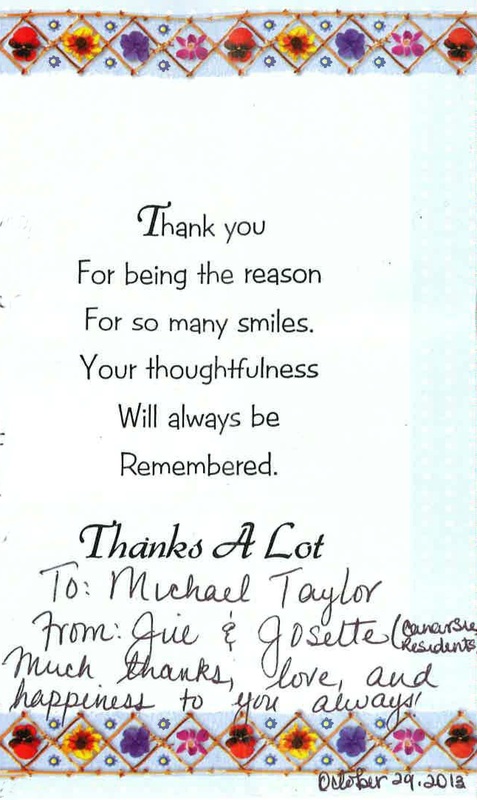 Thank you
For being the reason
For so many smiles.
Your thoughtfulness
Will always be
Remembered.
Thanks A Lot
To: Michael Taylor
From: & Josette (Canarsie
Residents)
Much thanks, love, and
happiness to you always!
October 29, 2013